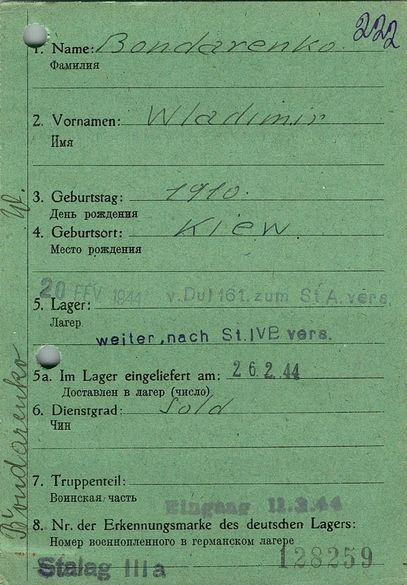 222
1. Name: Bondarenko.
Фамилия
2. Vornamen: Wladimir
Имя
3. Geburtstag: 1910.
День рождения
4. Geburtsort: Kiew
Место рождения
20 FEV. 1944 v. Dul 161. zum St.A. vers.
5. Lager:
Лагер
weiter, nach St. IVB vers.
5a. Im Lager eingeliefert am: 26.2.44
Доставлен в лагер (число)
6. Dienstgrad: Sold
Чин
7. Truppenteil:
Воинская часть
Eingang 11.3.44
8. Nr. der Erkennungsmarke des deutschen Lagers:
Номер военнопленного в германском лагере
Stalag IIIa 128259
Bondarenko W.